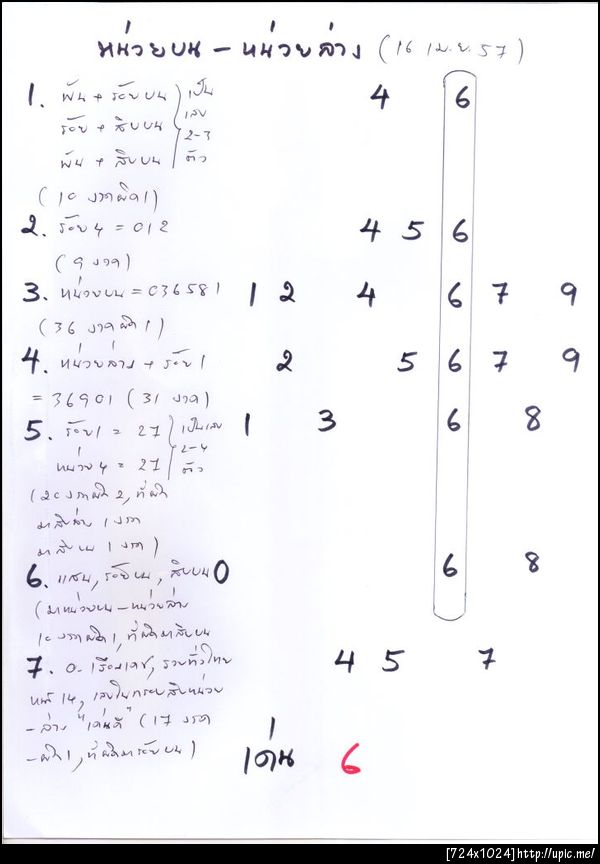 หน่วยบน - หน่วยล่าง (16 เม.ย. 57)
1. พัน + ร้อยบน เป็น 4 6
ร้อย + สิบบน เลข 2-3
พัน + สิบบน ตัว
(10 งวดผิด 1)
2. ร้อย 4 = 012 4 5 6
(9 งวด)
3. หน่วยบน = 036581 1 2 4 6 7 9
(36 งวดผิด 1)
4. หน่วยล่าง + ร้อย 1 2 5 6 7 9
= 36901 (31 งวด)
5. ร้อย 1 = 27 เป็นเลข 1 3 6 8
หน่วย 4 = 27 2-4 ตัว
(20 งวดผิด 2, ที่ผิด
มาสิบล่าง 1 งวด
มาสิบบน 1 งวด)
6. แสน, ร้อยบน, สิบบน 0 6 8
(มาหน่วยบน - หน่วยล่าง
10 งวดผิด 1, ที่ผิดมาสิบบน
7. อ. เรืองเดช, รวยทั่วไทย 4 5 7
หน้า 14, เลขในกรอบสิบหน่วย
- ล่าง "เด่นดี" (17 งวด
- ผิด 1, ที่ผิดมาร้อยบน)
เด่น 6
[724x1024]http://upic.me/